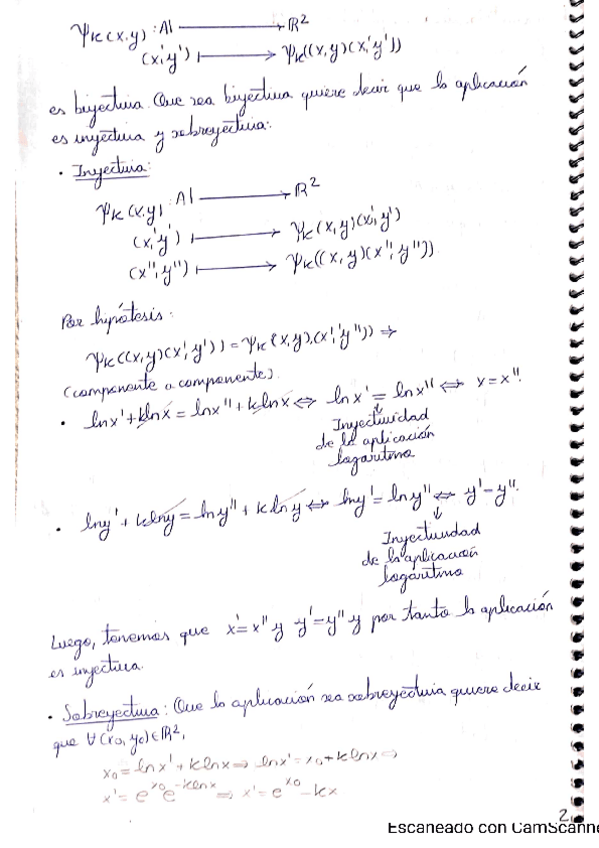 Ψk(x,y) : A| ⟶ ℝ²
(x',y') ⟼ Ψk((x,y)(x',y'))
es biyectiva. Que sea biyectiva quiere decir que la aplicación
es inyectiva y sobreyectiva:
· Inyectiva:
Ψk(x,y) : A| ⟶ ℝ²
(x',y') ⟼ Ψk(x,y)(x',y')
(x'',y'') ⟼ Ψk((x,y)(x'',y''))
Por hipótesis:
Ψk((x,y)(x',y')) = Ψk(x,y),(x'',y'')) ⇒
(componente a componente)
· lnx' + klnx = lnx'' + klnx ⇔ lnx' = lnx'' ⇔ x = x''.
Inyectividad
de la aplicación
logaritmo
· lny' + klny = lny'' + klny ⇔ lny' = lny'' ⇔ y' = y''.
Inyectividad
de la aplicación
logaritmo
Luego, tenemos que x' = x'' y y' = y'' y por tanto la aplicación
es inyectiva.
· Sobreyectiva: Que la aplicación sea sobreyectiva quiere decir
que ∀(x₀, y₀) ∈ ℝ²,
x₀ = lnx' + klnx ⇒ lnx' = x₀ + klnx ⇒
x' = e^x₀ e^-klnx ⇒ x' = e^x₀ - kx
2
Escaneado con CamScanne